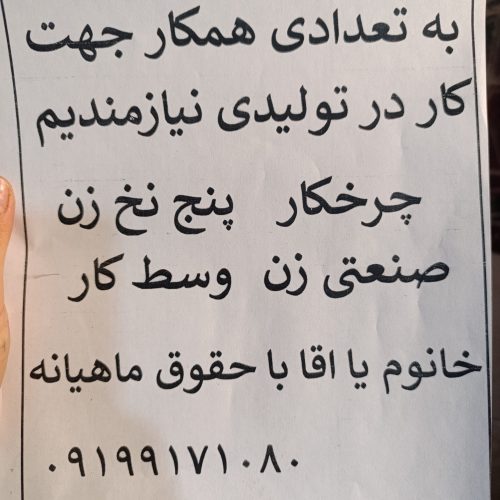 به تعدادی همکار جهت
کار در تولیدی نیازمندیم
چرخکار پنج نخ زن
صنعتی زن وسط کار
خانوم یا اقا با حقوق ماهیانه
۰۹۱۹۹۱۷۱۰۸۰